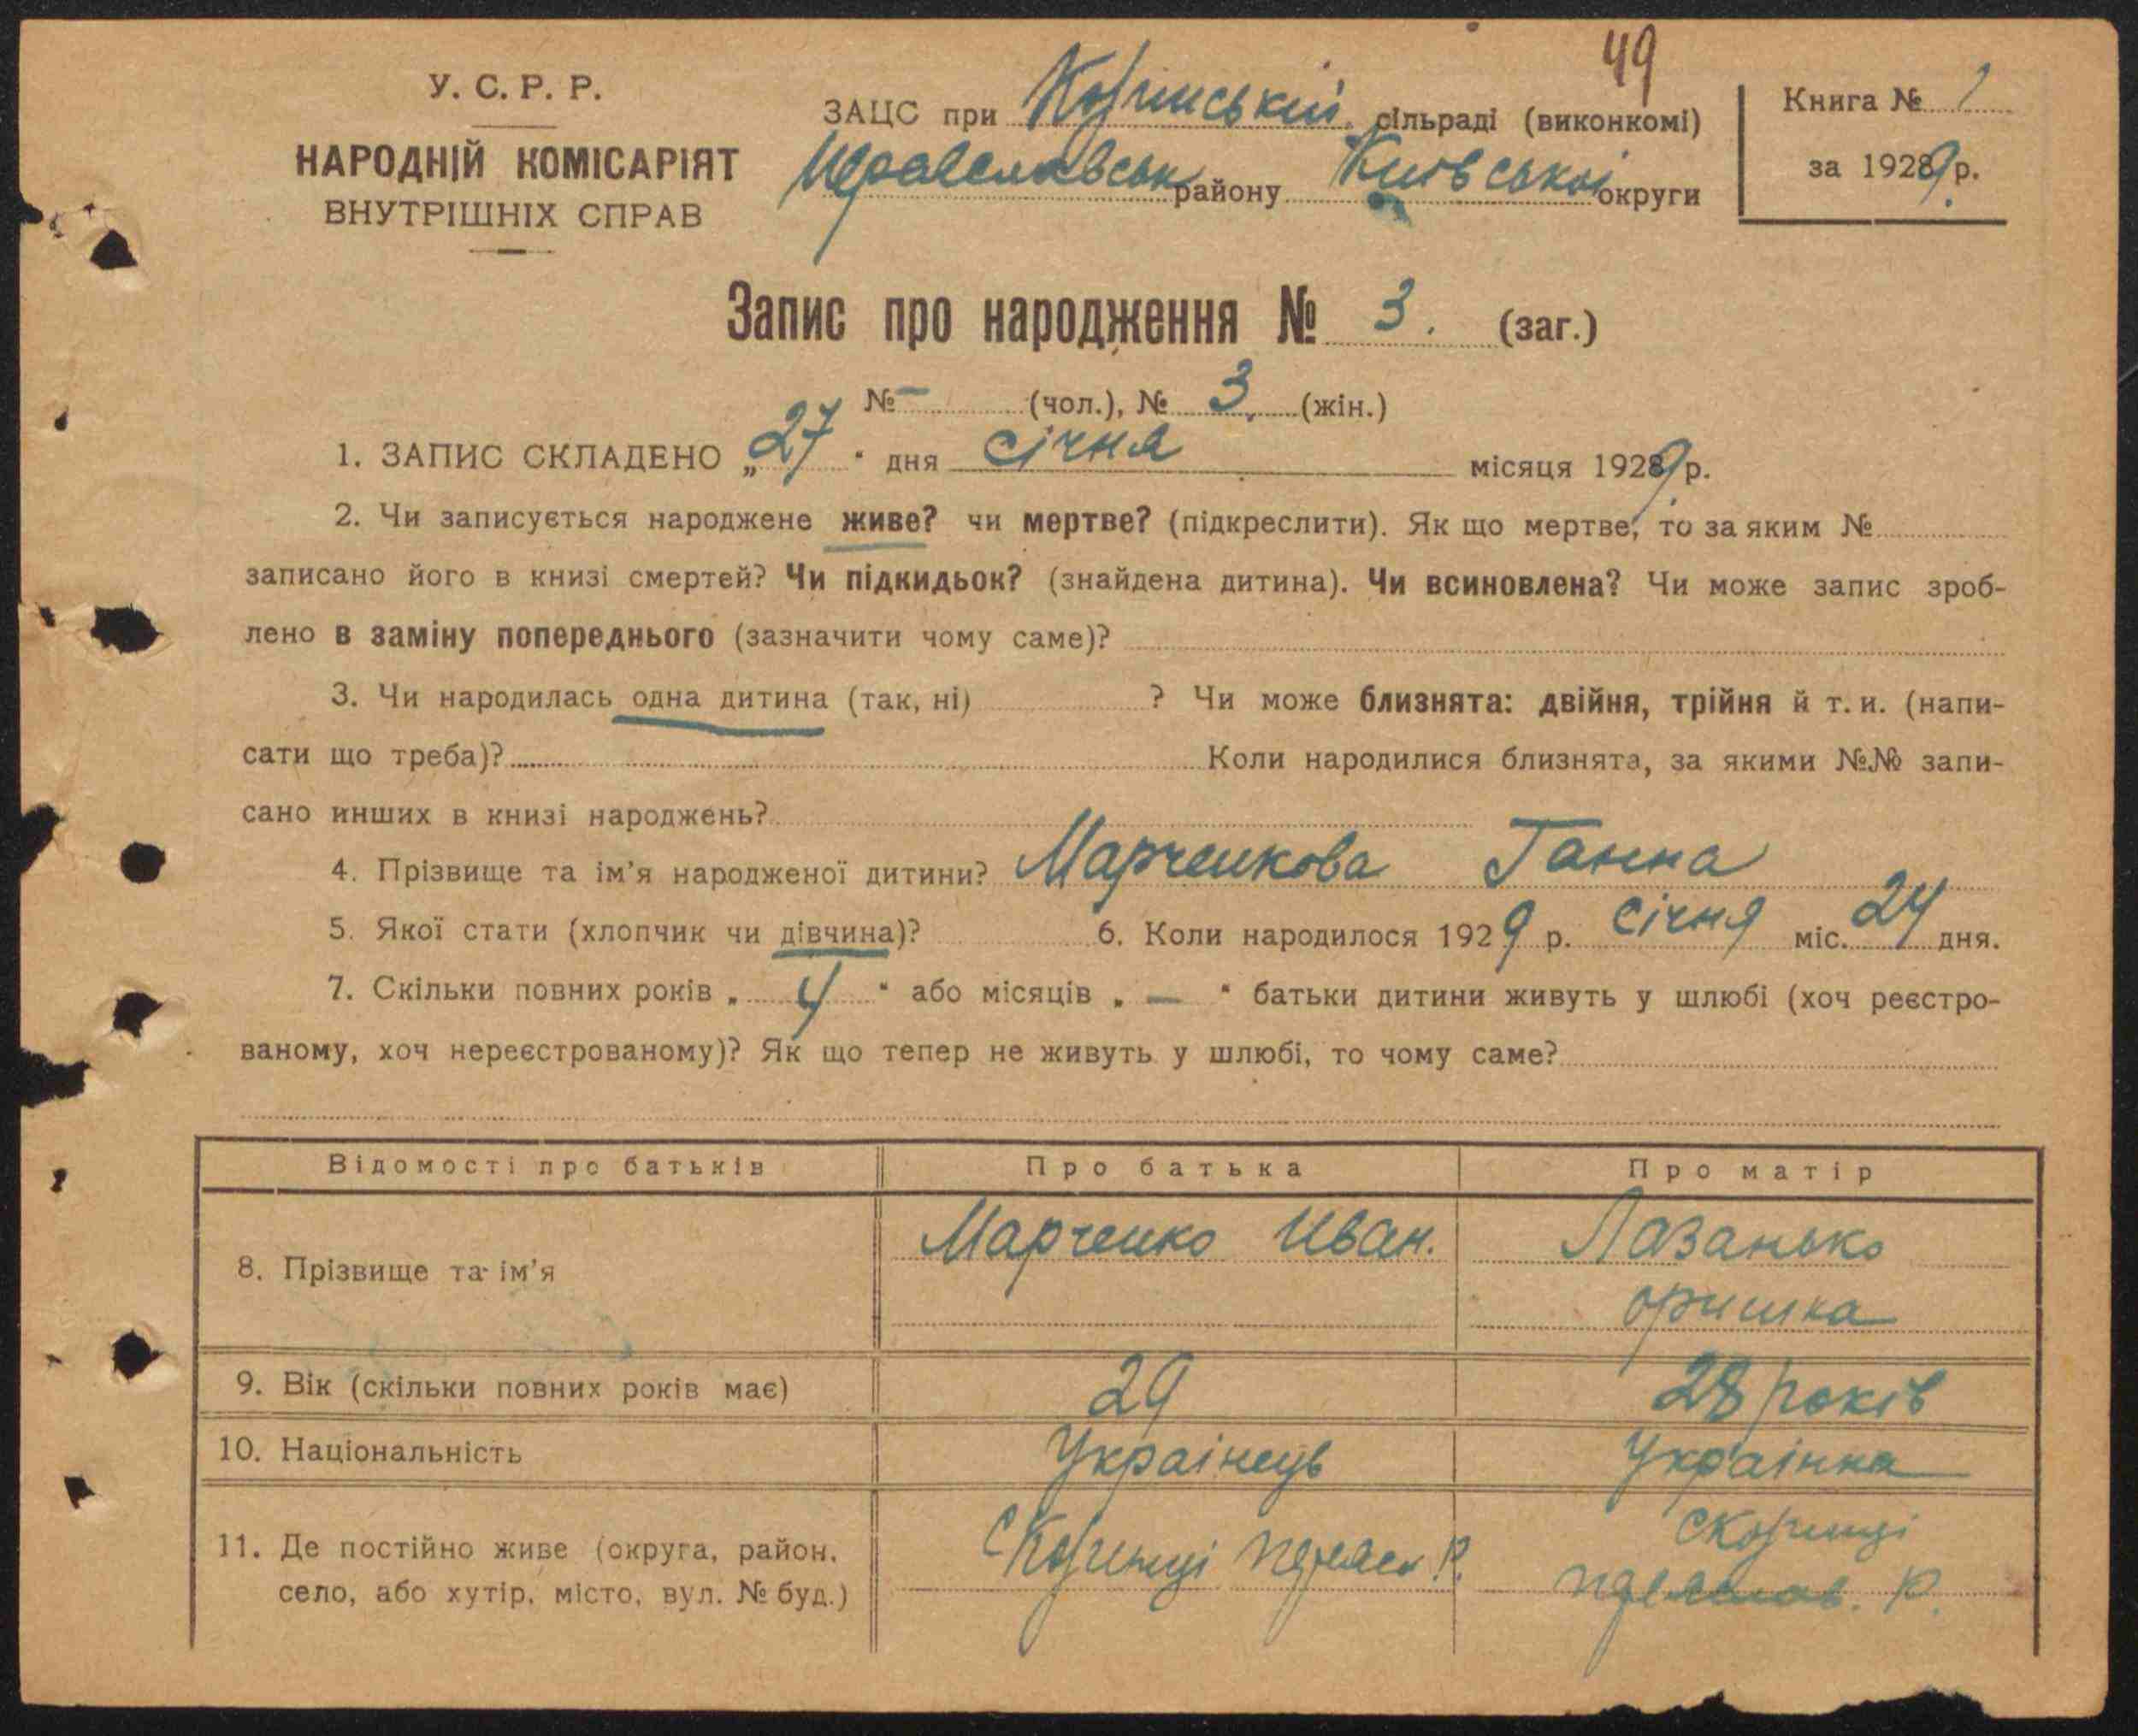 49
У. С. Р. Р.
НАРОДНІЙ КОМІСАРІЯТ
ВНУТРІШНІХ СПРАВ
ЗАЦС при сільраді (виконкомі)
району Київської округи
Книга № 1
за 1929 р.
Запис про народження № 3. (заг.)
№ – (чол.), № 3. (жін.)
1. ЗАПИС СКЛАДЕНО „27" дня січня місяця 1929 р.
2. Чи записується народжене живе? чи мертве? (підкреслити). Як що мертве, то за яким №
записано його в книзі смертей? Чи підкидьок? (знайдена дитина). Чи всиновлена? Чи може запис зроб-
лено в заміну попереднього (зазначити чому саме)?
3. Чи народилась одна дитина (так, ні) ? Чи може близнята: двійня, трійня й т. и. (напи-
сати що треба)? Коли народилися близнята, за якими №№ запи-
сано инших в книзі народжень?
4. Прізвище та ім'я народженої дитини? Марченкова Ганна
5. Якої стати (хлопчик чи дівчина)? 6. Коли народилося 1929 р. січня міс. 24 дня.
7. Скільки повних років „ 4 " або місяців „ — " батьки дитини живуть у шлюбі (хоч реєстро-
ваному, хоч нереєстрованому)? Як що тепер не живуть у шлюбі, то чому саме?
Відомості про батьків Про батька Про матір
8. Прізвище та ім'я Марченко Иван. Лазанько
оришка
9. Вік (скільки повних років має) 29 28 років
10. Національність Украінець Украінка
11. Де постійно живе (округа, район,
село, або хутір, місто, вул. № буд.)